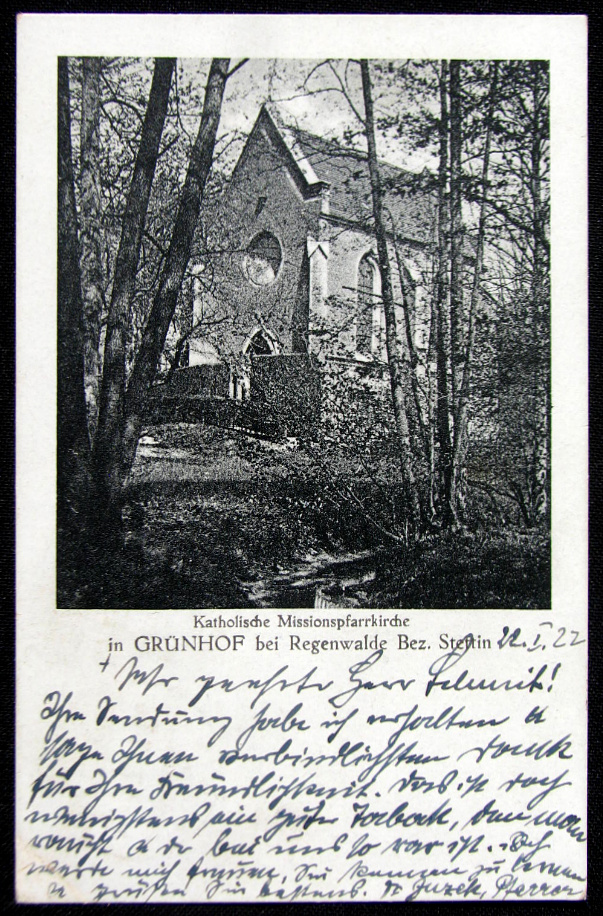 Katholische Missionspfarrkirche
in GRÜNHOF bei Regenwalde Bez. Stettin 22. I. 22
Sehr geehrter Herr Schmit!
Ihre Sendung habe ich erhalten u
sage Ihnen verbindlichsten Dank
für Ihre Freundlichkeit. Das ist doch
wenigstens ein guter Tabak, den man
raucht u der bei uns so rar ist. Ich
werde mich freuen, Sie kennen zu lernen
u grüßen Sie bestens. Pfarrer